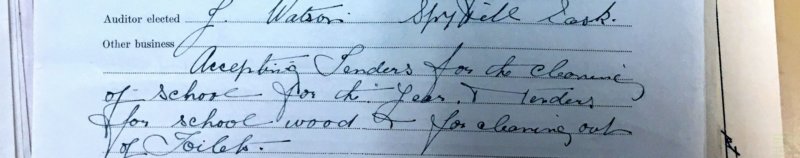 Auditor elected J. Watson Spy Hill Sask.
Other business
Accepting Tenders for the cleaning
of school for the Year. & Tenders
for school wood & for cleaning out
of Toilets.